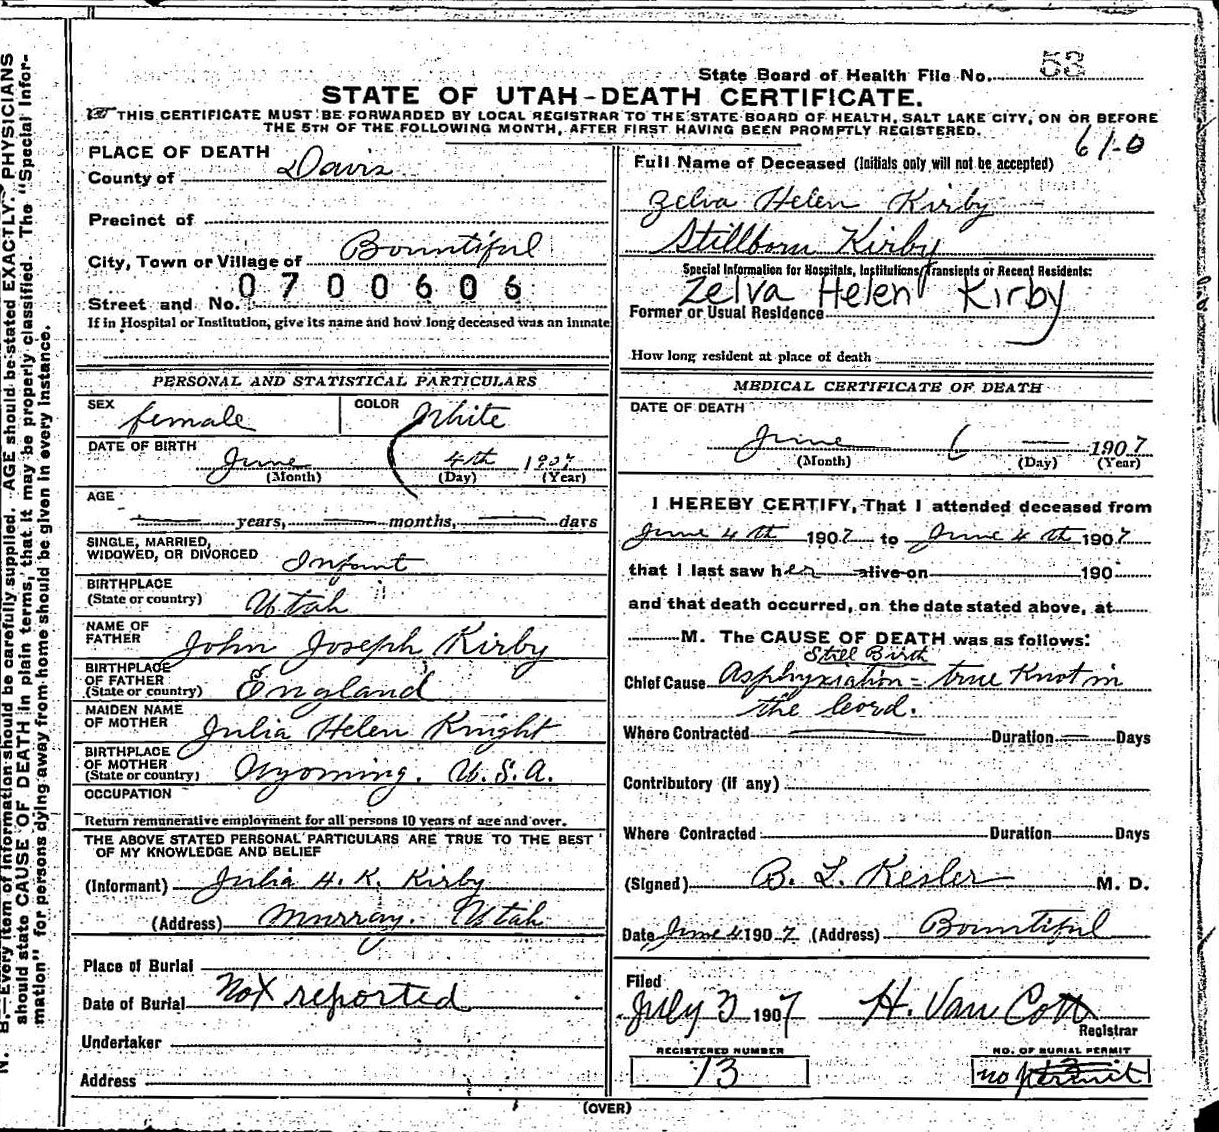 State Board of Health File No. 53
STATE OF UTAH-DEATH CERTIFICATE.
THIS CERTIFICATE MUST BE FORWARDED BY LOCAL REGISTRAR TO THE STATE BOARD OF HEALTH, SALT LAKE CITY, ON OR BEFORE
THE 5TH OF THE FOLLOWING MONTH, AFTER FIRST HAVING BEEN PROMPTLY REGISTERED.
61-0
PLACE OF DEATH
County of Davis
Precinct of
City, Town or Village of Bountiful
0700606
Street and No.
If in Hospital or Institution, give its name and how long deceased was an inmate
PERSONAL AND STATISTICAL PARTICULARS
SEX female COLOR White
DATE OF BIRTH June 4th 1907
(Month) (Day) (Year)
AGE
years, months, days
SINGLE, MARRIED,
WIDOWED, OR DIVORCED Infant
BIRTHPLACE
(State or country) Utah
NAME OF
FATHER John Joseph Kirby
BIRTHPLACE
OF FATHER
(State or country) England
MAIDEN NAME
OF MOTHER Julia Helen Knight
BIRTHPLACE
OF MOTHER
(State or country) Wyoming. U.S.A.
OCCUPATION
Return remunerative employment for all persons 10 years of age and over.
THE ABOVE STATED PERSONAL PARTICULARS ARE TRUE TO THE BEST
OF MY KNOWLEDGE AND BELIEF
(Informant) Julia H. K. Kirby
(Address) Murray. Utah
Place of Burial
Date of Burial Not reported
Undertaker
Address
Full Name of Deceased (Initials only will not be accepted)
Zelva Helen Kirby
Stillborn Kirby
Special Information for Hospitals, Institutions, Transients or Recent Residents:
Zelva Helen Kirby
Former or Usual Residence
How long resident at place of death
MEDICAL CERTIFICATE OF DEATH
DATE OF DEATH
June 6 1907
(Month) (Day) (Year)
I HEREBY CERTIFY, That I attended deceased from
June 4th 1907 to June 4th 1907
that I last saw her alive on 190
and that death occurred, on the date stated above, at
M. The CAUSE OF DEATH was as follows:
Still Birth
Chief Cause Asphyxiation = true Knot in
the Coord.
Where Contracted Duration Days
Contributory (if any)
Where Contracted Duration Days
(Signed) B. L. Kesler M. D.
Date June 4 1907 (Address) Bountiful
Filed
July 3 1907 H. Van Cott
Registrar
REGISTERED NUMBER
13
NO. OF BURIAL PERMIT
no permit
(OVER)
N. B.—Every item of information should be carefully supplied. AGE should be stated EXACTLY. PHYSICIANS
should state CAUSE OF DEATH in plain terms, that it may be properly classified. The "Special Infor-
mation" for persons dying away from home should be given in every instance.